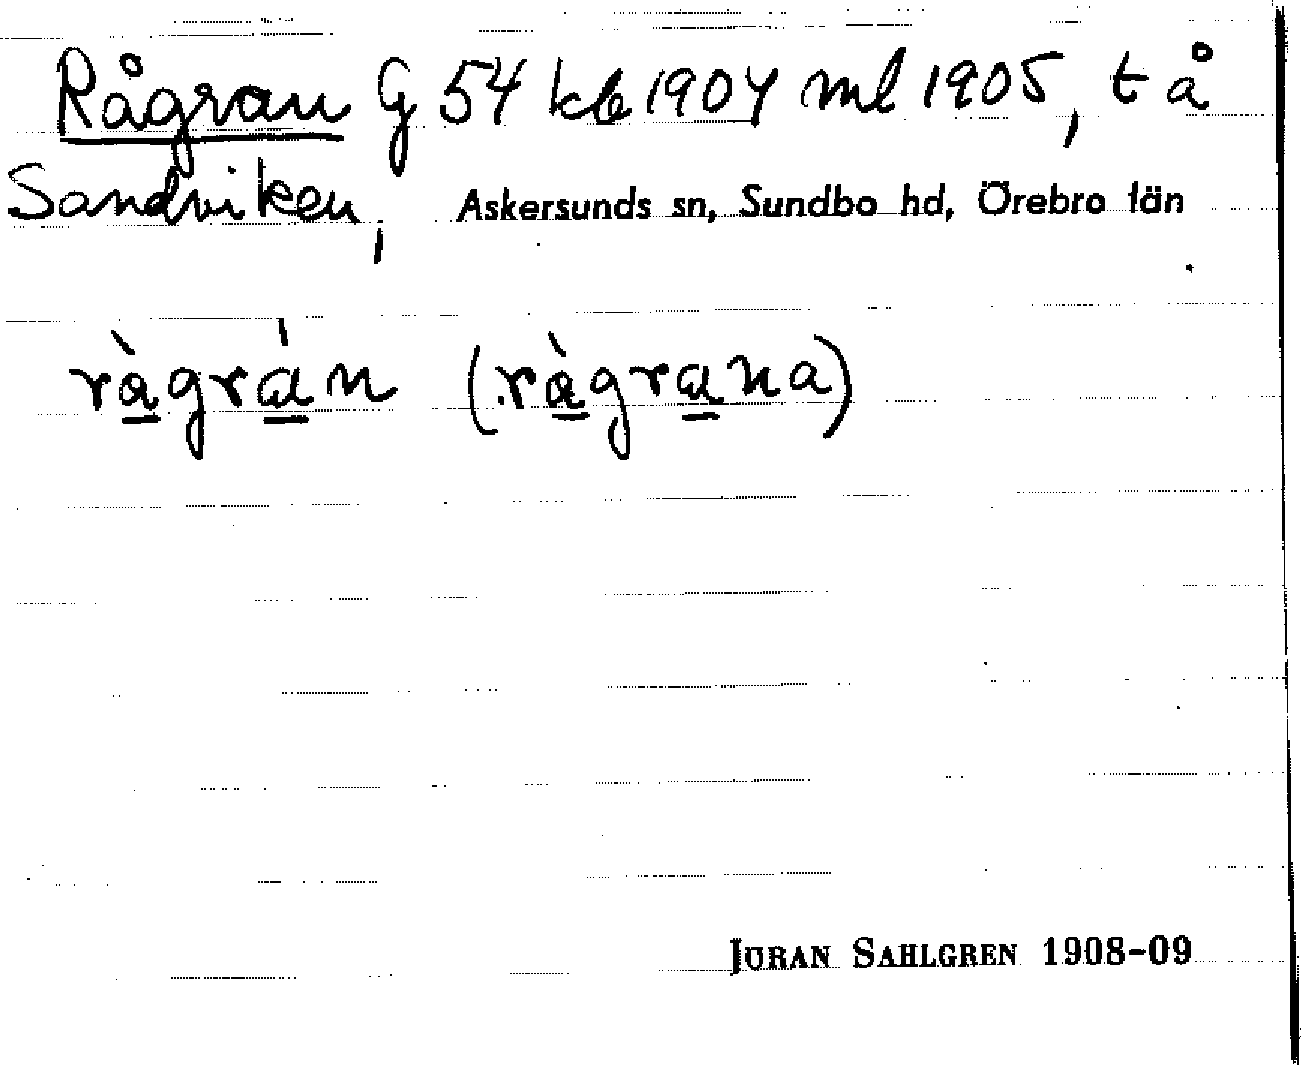 Rågran G 54 kb 1904 ml 1905, t å
Sandviken, Askersunds sn, Sundbo hd, Örebro län
ràgrán (ràgrana)
JÖRAN SAHLGREN 1908-09